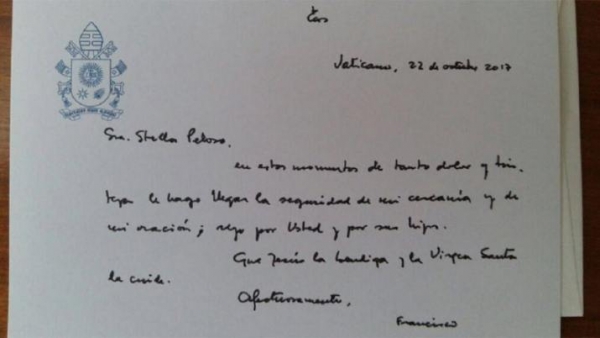 Vaticano, 22 de octubre 2017
Sra. Stella Peloso.
en estos momentos de tanto dolor y tris-
teza le hago llegar la seguridad de mi cercanía y de
mi oración; rezo por Usted y por sus hijos.
Que Jesús la bendiga y la Virgen Santa
la cuide.
Afectuosamente,
Francisco